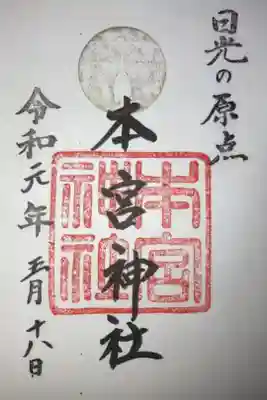 日光の原点
本宮神社
本宮
神社
令和元年 五月 十八日